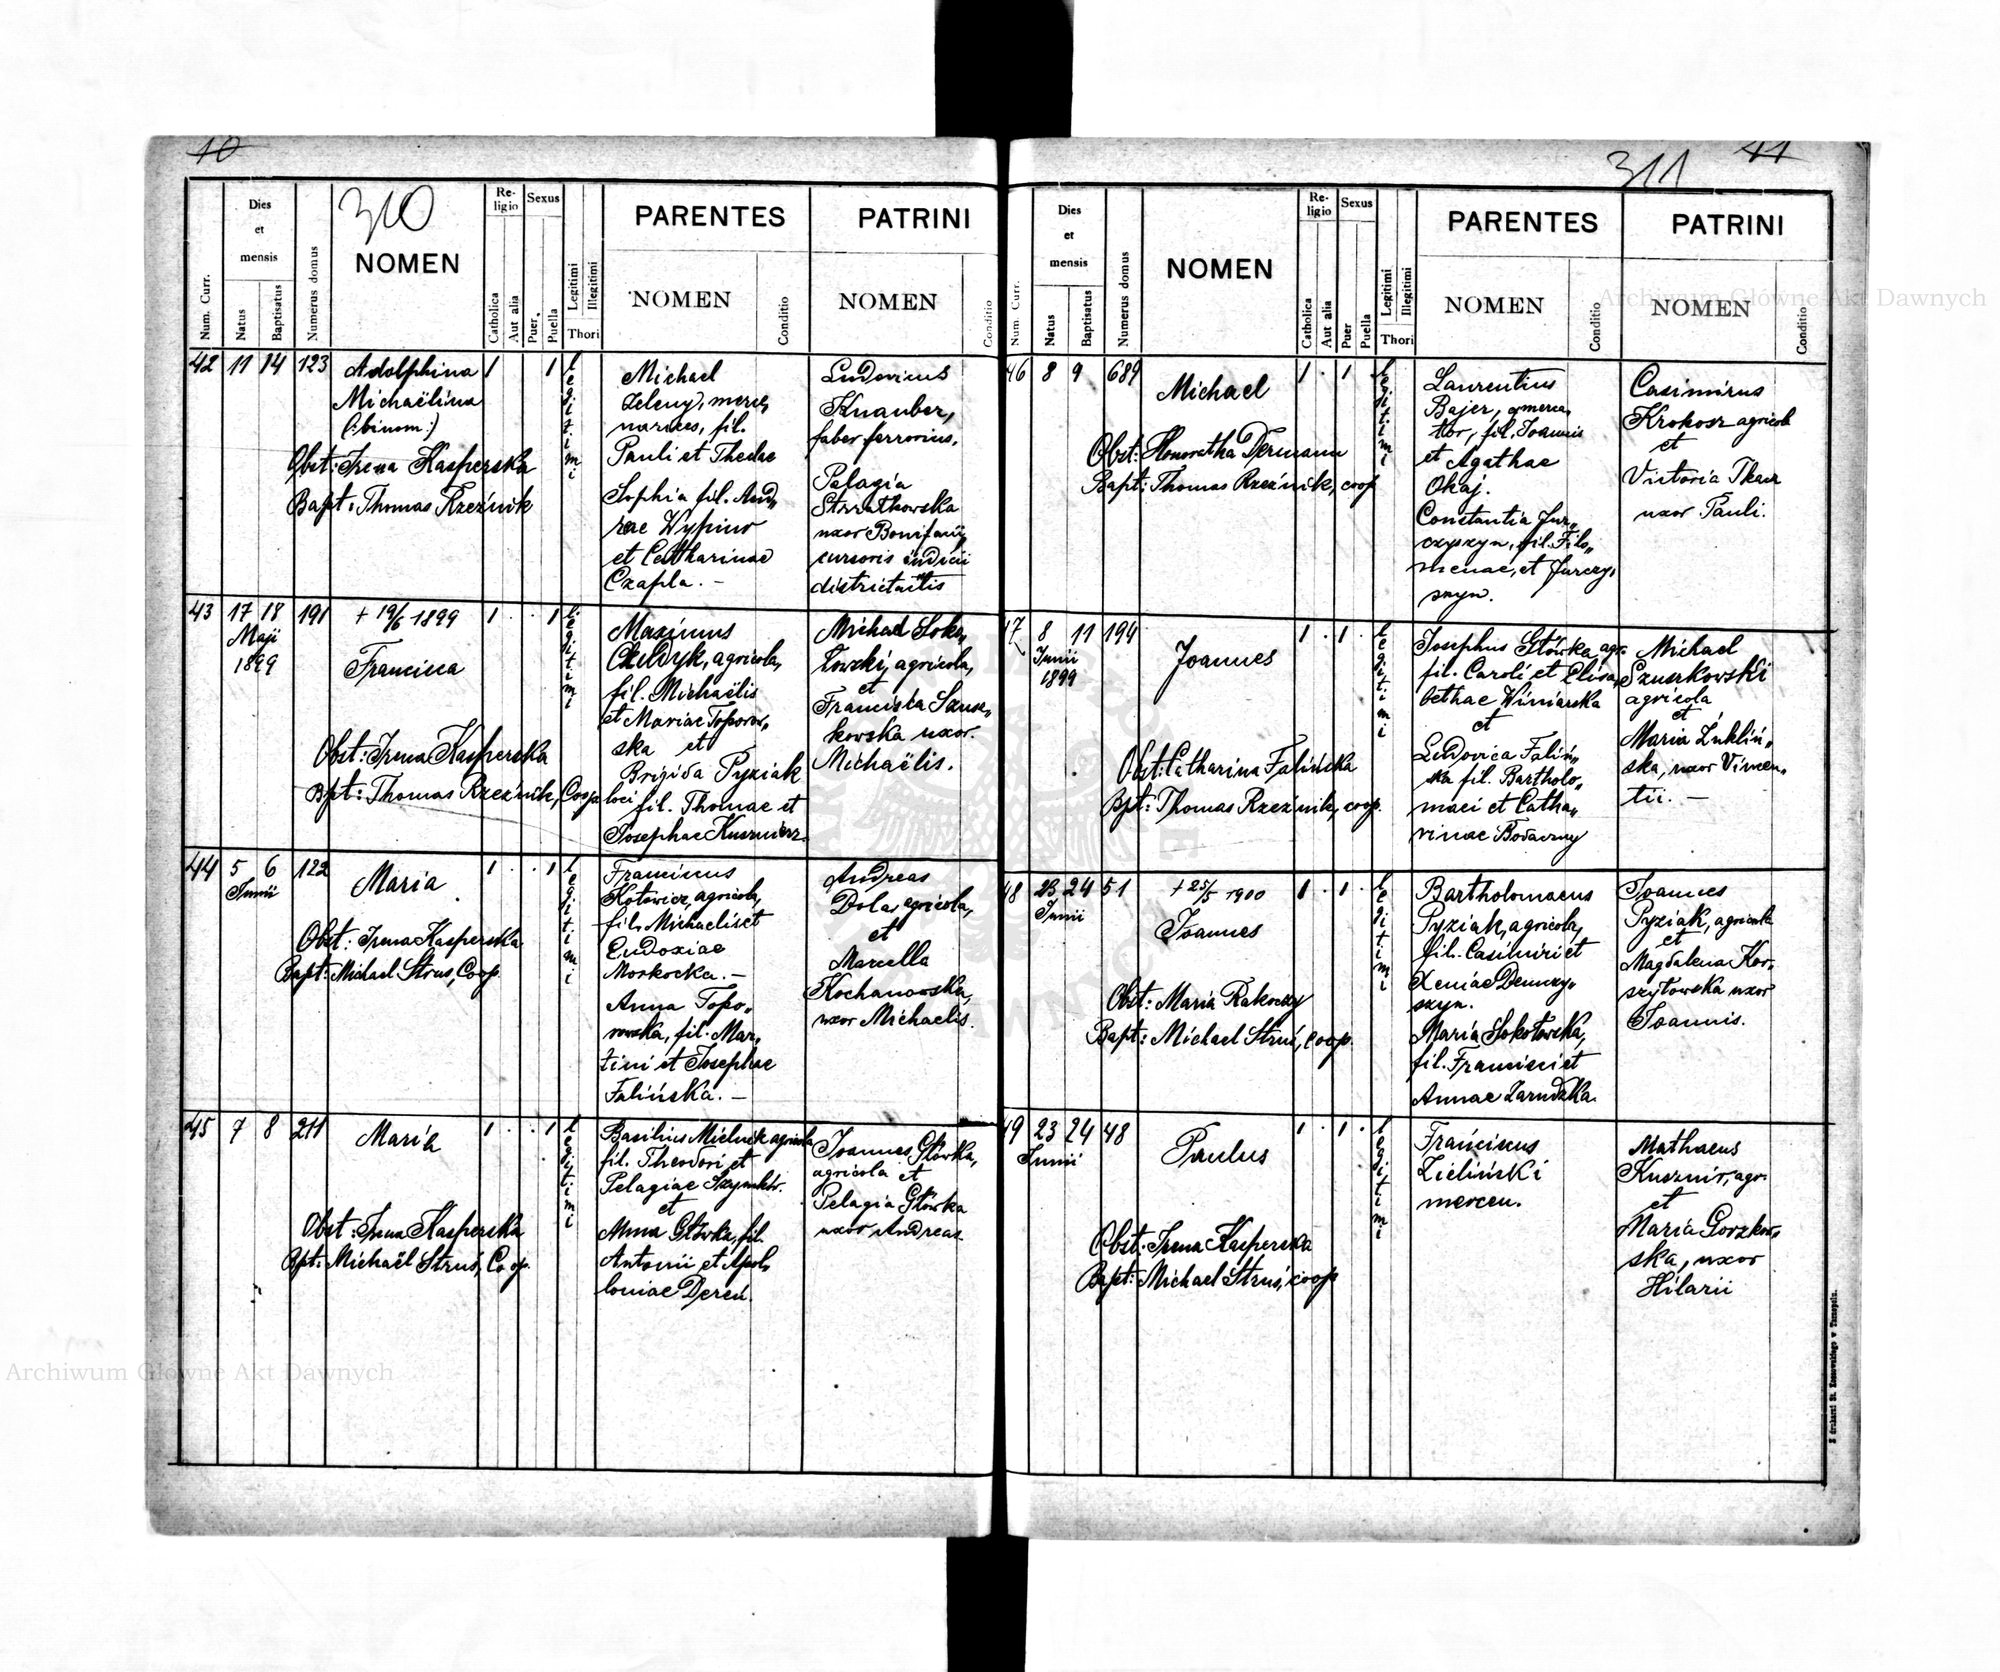 10
310
Num. Curr.
Dies
et
mensis
Natus
Baptisatus
Numerus domus
NOMEN
Re-
ligio
Catholica
Aut alia
Sexus
Puer
Puella
Legitimi
Illegitimi
Thori
PARENTES
NOMEN
Conditio
PATRINI
NOMEN
Conditio
42 11 14 123
Adolphina
Michaëlina
(:binom:)
Obst: Irena Kasperska
Bapt: Thomas Rzeźnik
1 1
legitimi
Michael
Zeleny, merce„
narius, fil.
Pauli et Theclae
Sophia fil. And„
reae Wypiuw
et Catharinae
Czapla. —
Ludovicus
Knauber,
faber ferrarius.
Pelagia
uxor Bonifacii,
cursoris iudicii
43 17 18 191
Maji
1899
+ 19/6 1899
Francisca
Obst: Irena Kasperska
Bpt: Thomas Rzeźnik, Coop loci
1 . . 1
legitimi
Maximus
agricola,
fil. Michaëlis
et Mariae Toporow„
ska et
Brigida Pyziak
fil. Thomae et
Josephae Kuszmierz
Michael Soko„
łowski, agricola,
et
Francisca Szusz„
kowska uxor
Michaëlis.
44 5 6 122
Junii
Maria
Obst: Irena Kasperska
Bapt: Michael Strus, Coop.
1 . . 1
legitimi
Franciscus
Kotowicz, agricola,
fil. Michaelis et
Eudoxiae
Moskocka. —
Anna Topo„
rowska, fil. Mar„
tini et Josephae
Falińska. —
Andreas
Dolas agricola,
et
Marcella
Kochanowska,
uxor Michaelis.
45 7 8 211
Maria
Obst: Irena Kasperska
Bpt: Michaël Struś, Coop.
1 . . 1
legitimi
Basilius Mielnik agricola
fil. Theodori et
Pelagiae
et
Anna Główka, fil.
Antonii et Apol„
loniae Dereń.
Joannes Główka,
agricola et
Pelagia Główka
uxor Andreae
311
11
Num. Curr.
Dies
et
mensis
Natus
Baptisatus
Numerus domus
NOMEN
Re-
ligio
Catholica
Aut alia
Sexus
Puer
Puella
Legitimi
Illegitimi
Thori
PARENTES
NOMEN
Conditio
PATRINI
NOMEN
Conditio
46 8 9 689
Michael
Obst: Honoratha Dermann
Bapt: Thomas Rzeźnik, coop
1 . 1
legitimi
Laurentius
Bajer,
fil. Joannis
et Agathae
Okaj.
Constantia Jur„
czyszyn, fil. Filo„
menae, et Jurczy„
szyn.
Casimirus
Krokosz agricola
et
Victoria Tkacz
uxor Pauli.
47 8 11 194
Junii
1899
Joannes
Obst: Catharina Falińska
Bpt: Thomas Rzeźnik, coop.
1 . 1 .
legitimi
Josephus Główka agr.
fil. Caroli et Elisa„
bethae Winiarska
et
Ludovica Faliń„
ska fil. Bartholo„
maei et Catha„
rinae Bodaczny
Michael
Szuszkowski
agricola
et
Maria Żukliń„
ska, uxor Vincen„
tii. —
48 23 24 51
Junii
+ 25/5 1900
Joannes
Obst: Maria Rakoczy
Bapt: Michael Struś, Coop.
1 . 1 .
legitimi
Bartholomaeus
Pyziak, agricola,
fil. Casimiri et
Xeniae Demczy„
szyn.
Maria Sokołowska,
fil. Francisci et
Annae Zarudzka.
Joannes
Pyziak, agricola
et
Magdalena Kor„
szytowska uxor
Joannis.
49 23 24 48
Junii
Paulus
Obst: Irena Kasperska
Bapt: Michael Struś, coop
1 . 1 .
legitimi
Franciscus
Zieliński
mercen.
Mathaeus
Kuszmir, agr.
et
Maria Gorzkow„
ska, uxor
Hilarii
Z drukarni St. Kossowskiego w Tarnopolu.
Archiwum Główne Akt Dawnych
Archiwum Główne Akt Dawnych